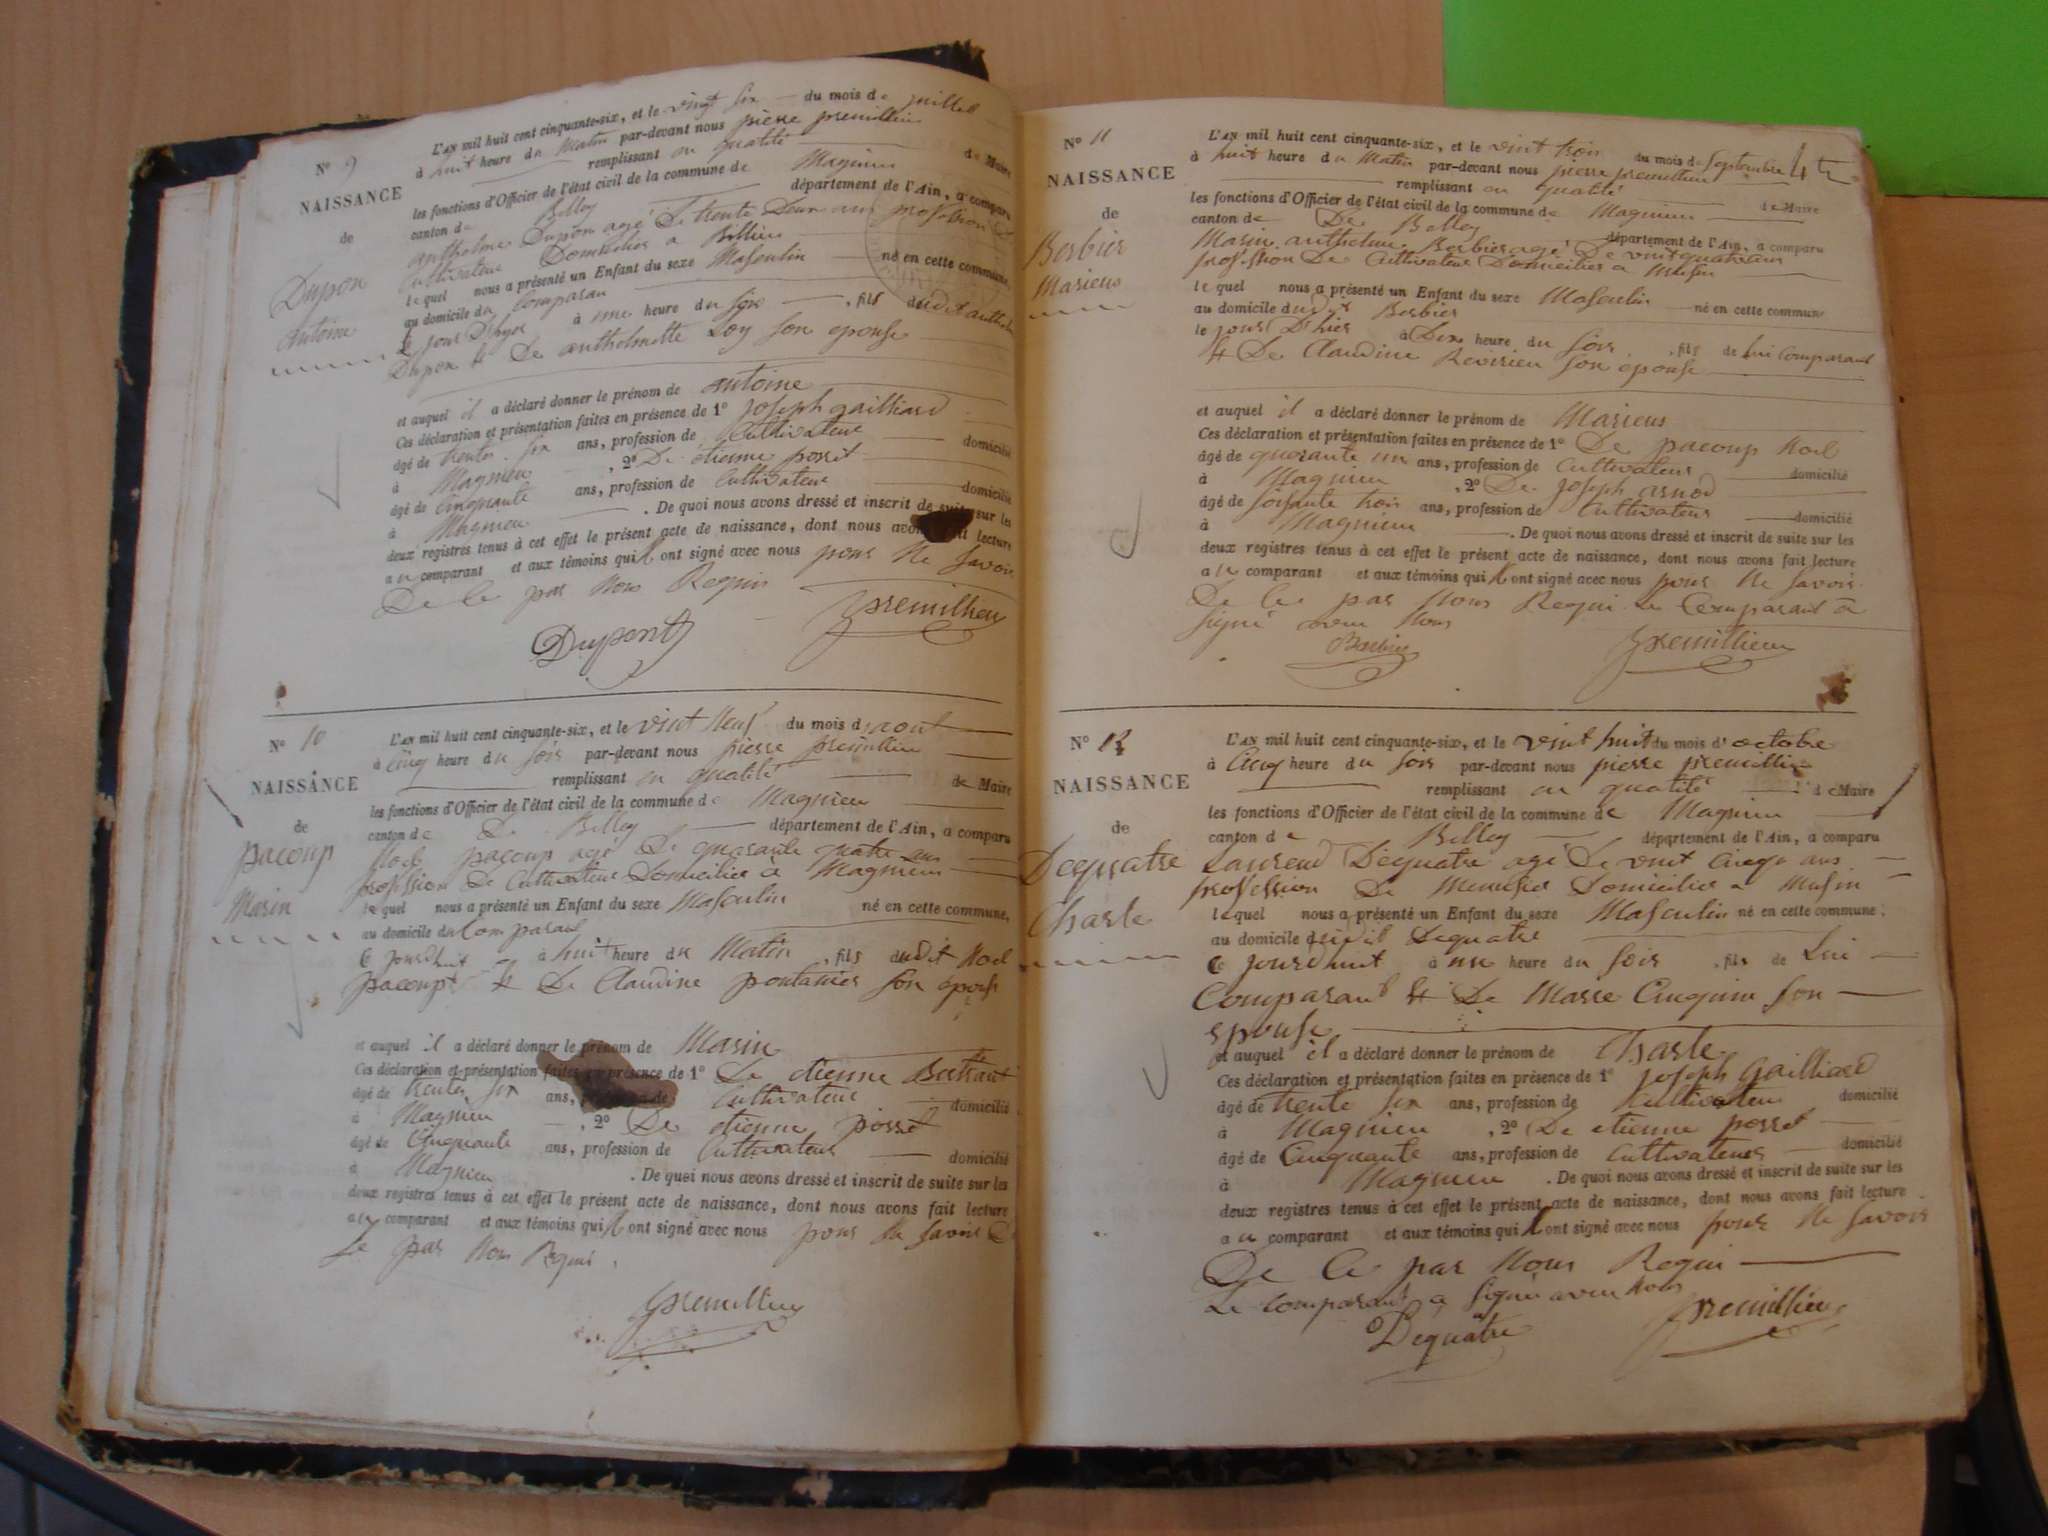 N° 9
NAISSANCE
de
Dupon
antoine
L'AN mil huit cent cinquante-six, et le vingt six du mois de juillet
à huit heure du Matin par-devant nous pierre premillieu
remplissant en qualité de Maire
les fonctions d'Officier de l'état civil de la commune de Magnieu
canton de Belley département de l'Ain, a comparu
anthelme Dupon agé De trente Deux ans profession De
Cultivateur Domicilier a Billieu
le quel nous a présenté un Enfant du sexe Masculin né en cette commune,
au domicile du Comparan
à une heure du soir , fils dudit anthelme
Dupon et De anthelmette Loy son epouse
et auquel il a déclaré donner le prénom de antoine
Ces déclaration et présentation faites en présence de 1° joseph gailliard
âgé de trente six ans, profession de Cultivateur domicilié
à Magnieu , 2° De etienne posset
âgé de Cinquante ans, profession de Cultivateur domicilié
à Magnieu . De quoi nous avons dressé et inscrit de suite sur les
deux registres tenus à cet effet le présent acte de naissance, dont nous avons fait lecture
au comparant et aux témoins qui n ont signé avec nous pour ne savoir
De ce par Nous Requis
Dupont premillieu
N° 10
NAISSANCE
de
pacoup
Marin
L'AN mil huit cent cinquante-six, et le vint Neuf du mois d'aout
à cinq heure du soir par-devant nous pierre premillieu
remplissant en qualité de Maire
les fonctions d'Officier de l'état civil de la commune de Magnieu
canton de De Belley département de l'Ain, a comparu
Noel pacoup agé De quarante quatre ans
profession De Cultivateur Domicilier à Magnieu
le quel nous a présenté un Enfant du sexe Masculin né en cette commune,
au domicile du Comparant
Ce jourdhuit à huit heure du Matin , fils dudit Noel
pacoup et De Claudine pontanier son epouse
et auquel il a déclaré donner le prénom de Marin
Ces déclaration et présentation faites en présence de 1° De etienne Bertrant
âgé de trente six ans, profession de Cultivateur domicilié
à Magnieu , 2° De etienne posset
âgé de Cinquante ans, profession de Cultivateur domicilié
à Magnieu . De quoi nous avons dressé et inscrit de suite sur les
deux registres tenus à cet effet le présent acte de naissance, dont nous avons fait lecture
au comparant et aux témoins qui n ont signé avec nous pour ne savoir De
Ce par Nous Requis
premillieu
N° 11
NAISSANCE
de
Berbier
Marieus
L'AN mil huit cent cinquante-six, et le vint trois du mois de Septembre
à huit heure du Matin par-devant nous pierre premillieu
remplissant en qualité de Maire
les fonctions d'Officier de l'état civil de la commune de Magnieu
canton de De Belley département de l'Ain, a comparu
Marin anthelme Berbier agé De vint quatre ans
profession De Cultivateur Domicilier a Musin
le quel nous a présenté un Enfant du sexe Masculin né en cette commune
au domicile dudit Berbier
le jour D'hier à Dix heure du soir , fils de lui Comparant
et De Claudine Revirieu son epouse
et auquel il a déclaré donner le prénom de Marieus
Ces déclaration et présentation faites en présence de 1° De pacoup Noel
âgé de quarante un ans, profession de Cultivateur domicilié
à Magnieu , 2° De joseph arnod
âgé de soisante trois ans, profession de Cultivateur domicilié
à Magnieu . De quoi nous avons dressé et inscrit de suite sur les
deux registres tenus à cet effet le présent acte de naissance, dont nous avons fait lecture
au comparant et aux témoins qui n ont signé avec nous pour ne savoir
De ce par Nous Requi Le Comparant a
signé avec Nous
Barbier premillieu
N° 12
NAISSANCE
de
Dequatre
Charle
L'AN mil huit cent cinquante-six, et le vint huit du mois d'octobre
à Cinq heure du soir par-devant nous pierre premillieu
remplissant en qualité de Maire
les fonctions d'Officier de l'état civil de la commune de Magnieu
canton de Belley département de l'Ain, a comparu
Laurend Dequatre agé De vint Cinq ans
profession De Menusier Domicilier a Musin
le quel nous a présenté un Enfant du sexe Masculin né en cette commune,
au domicile dudit Dequatre
Ce jourdhuit à une heure du soir , fils de Lui
Comparant et De Marie Cuquin son
epouse
et auquel il a déclaré donner le prénom de Charle
Ces déclaration et présentation faites en présence de 1° joseph gailliard
âgé de trente six ans, profession de Cultivateur domicilié
à Magnieu , 2° De etienne posset
âgé de Cinquante ans, profession de Cultivateur domicilié
à Magnieu . De quoi nous avons dressé et inscrit de suite sur les
deux registres tenus à cet effet le présent acte de naissance, dont nous avons fait lecture
au comparant et aux témoins qui n ont signé avec nous pour ne savoir
De Ce par Nous Requi
Le Comparant a signé avec Nous
Dequatre premillieu